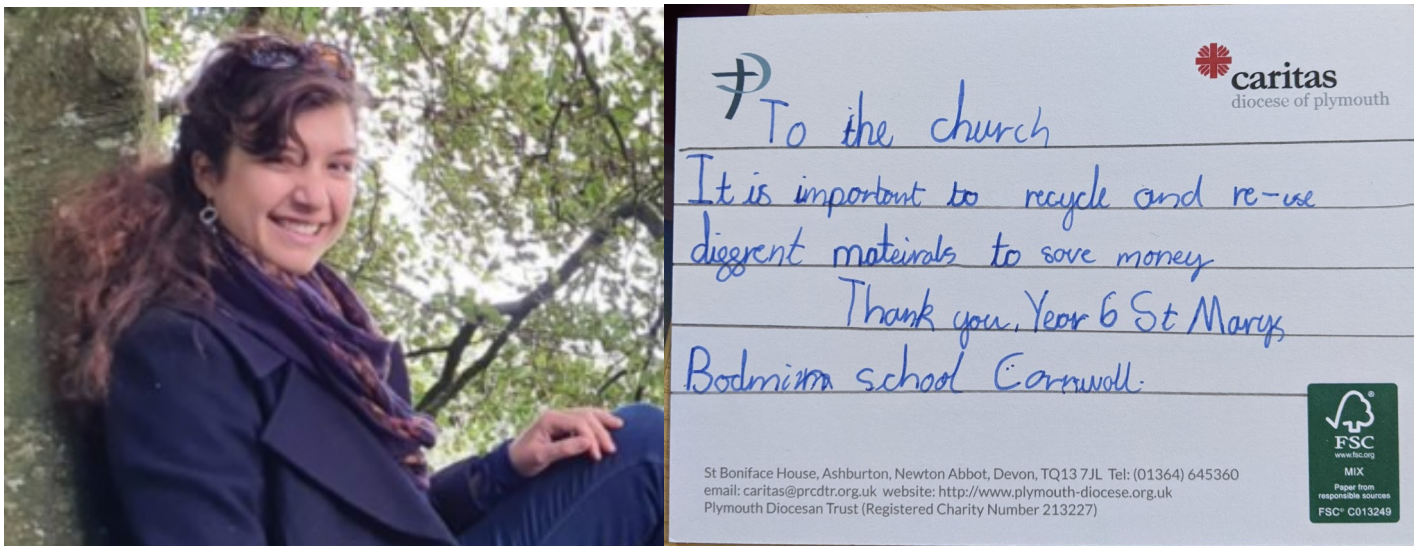 caritas
diocese of plymouth
To the church
It is important to recycle and re-use
diggrent mateirals to save money
Thank you, Year 6 St Marys
Bodmin school Cornwall.
St Boniface House, Ashburton, Newton Abbot, Devon, TQ13 7JL Tel: (01364) 645360
email: caritas@prcdtr.org.uk website: http://www.plymouth-diocese.org.uk
Plymouth Diocesan Trust (Registered Charity Number 213227)
®
FSC
www.fsc.org
MIX
Paper from
responsible sources
FSC® C013249